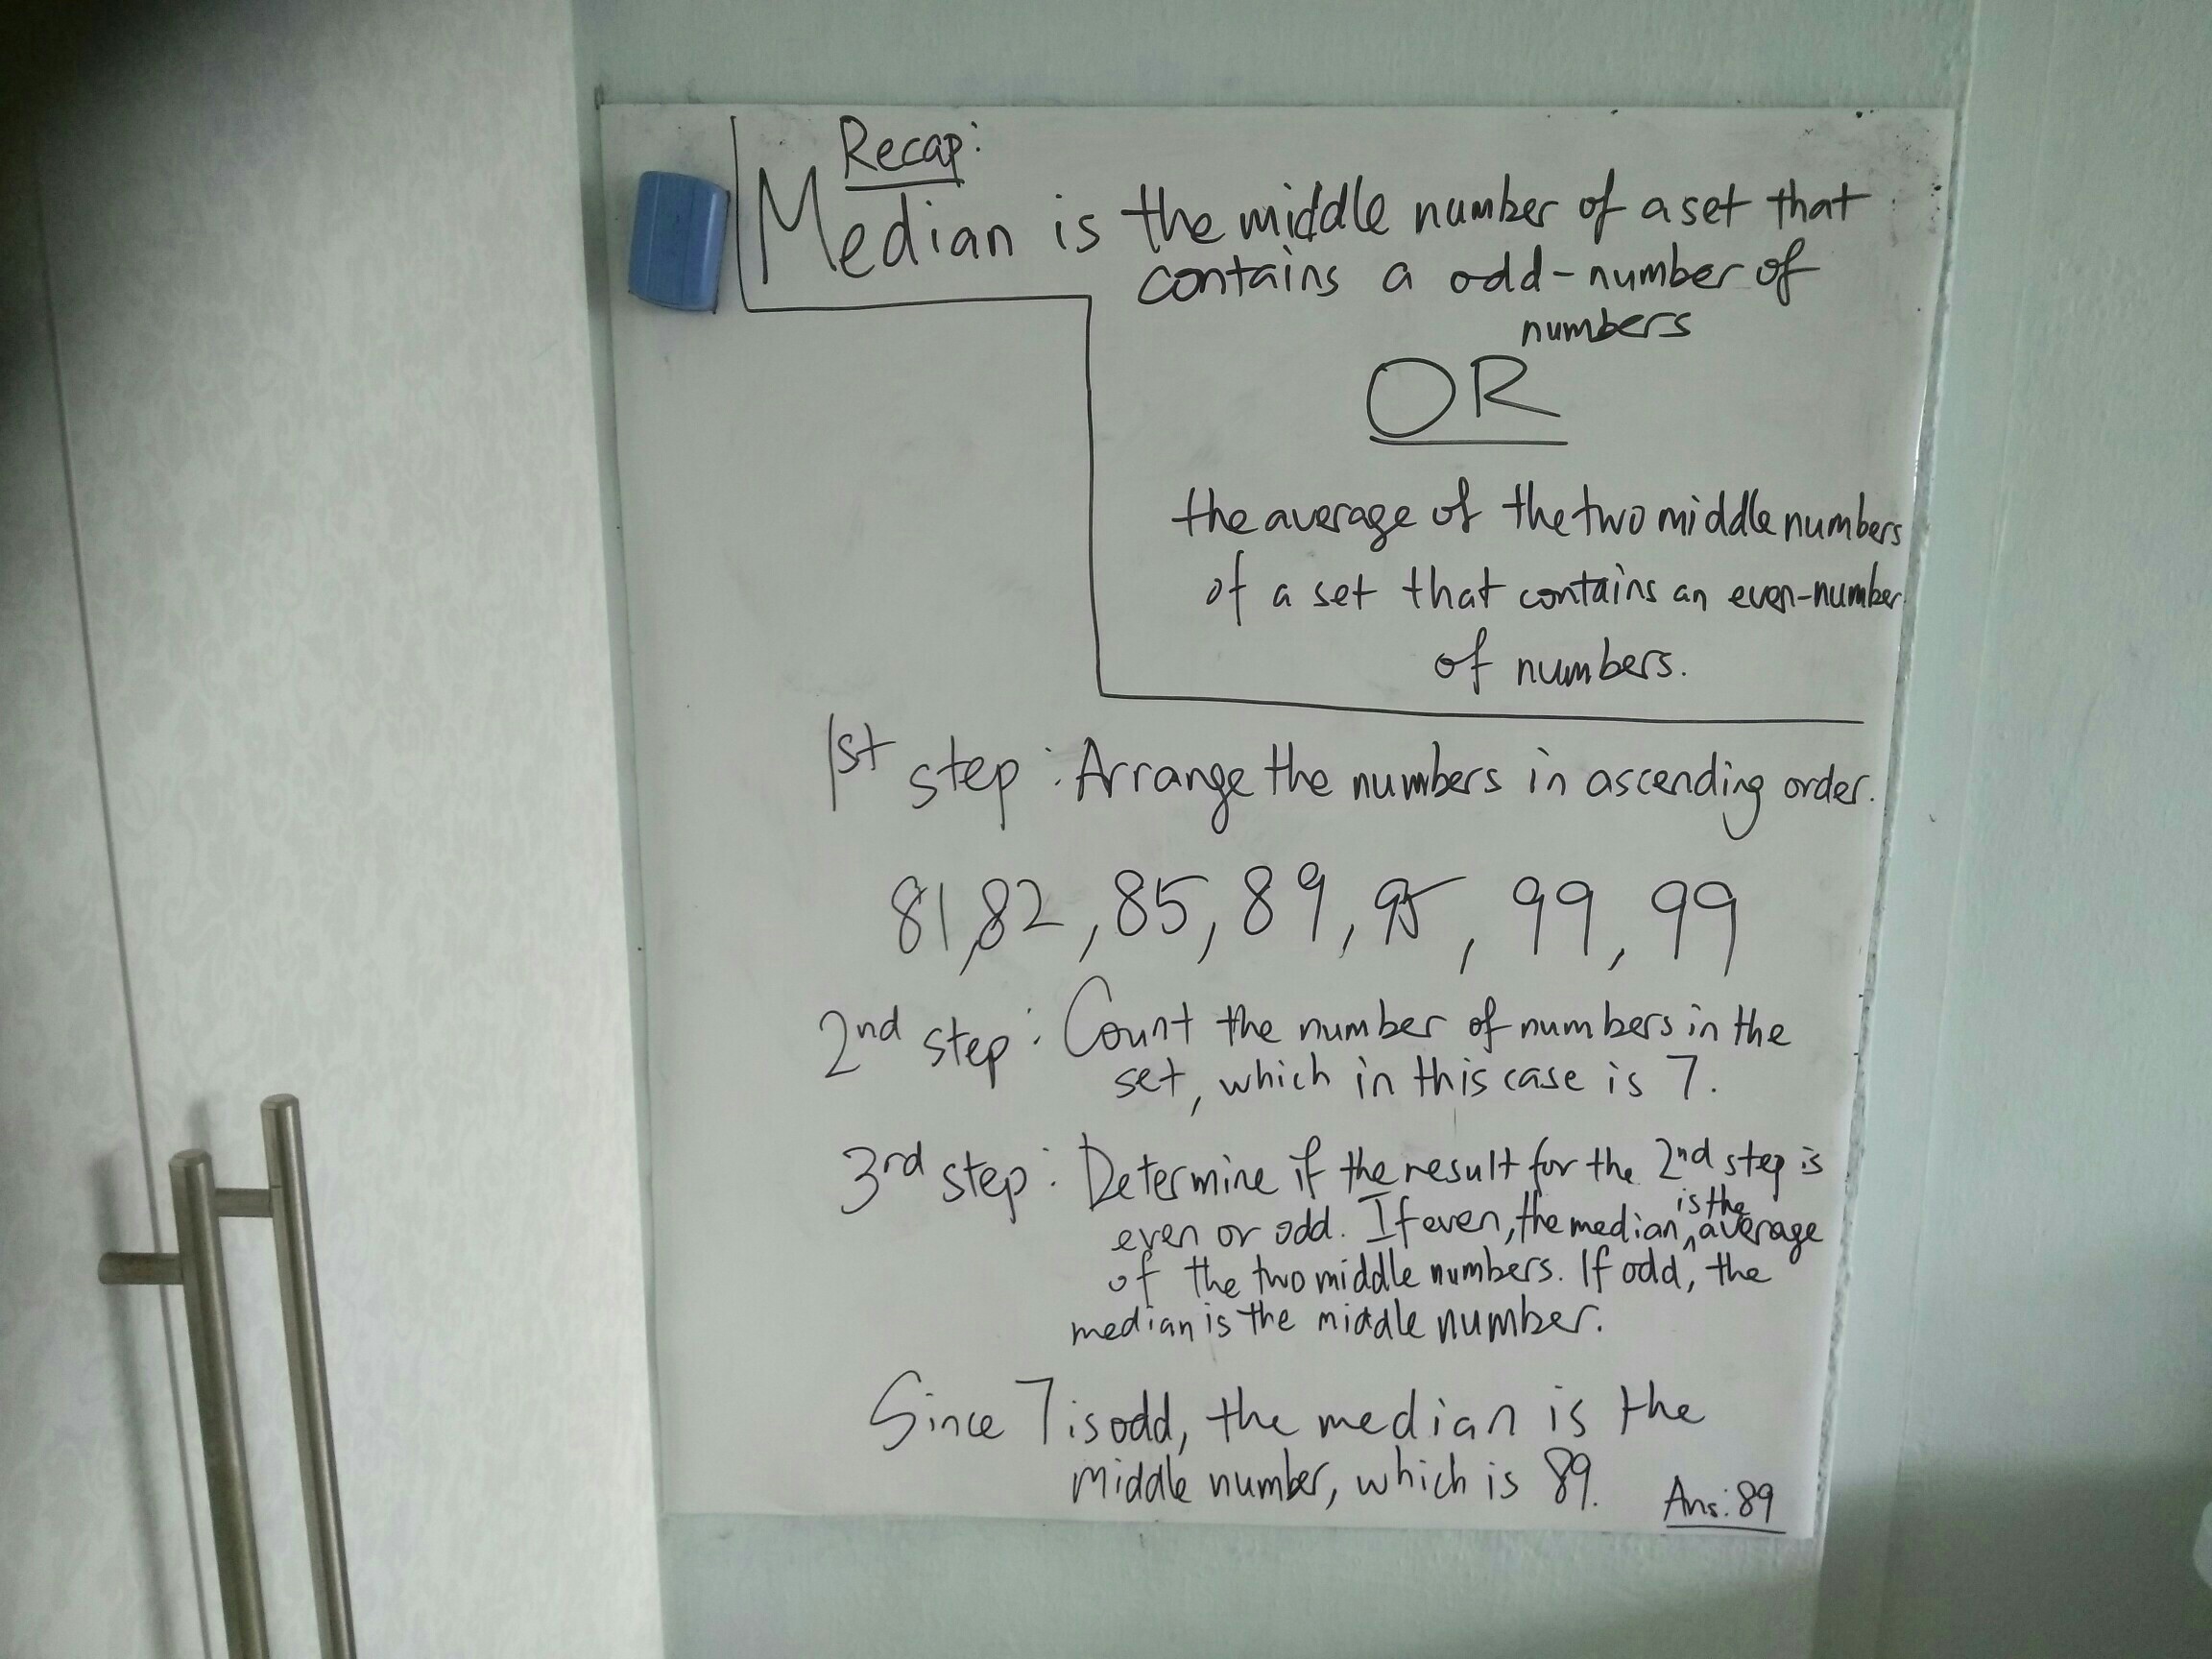 Recap:
Median is the middle number of a set that
contains a odd-number of
numbers
OR
the average of the two middle numbers
of a set that contains an even-number
of numbers.
1st step: Arrange the numbers in ascending order.
81,82,85,89,95,99,99
2nd step: Count the number of numbers in the
set, which in this case is 7.
3rd step: Determine if the result for the 2nd step is
even or odd. If even, the median is the average
of the two middle numbers. If odd, the
median is the middle number.
Since 7 is odd, the median is the
middle number, which is 89.
Ans: 89